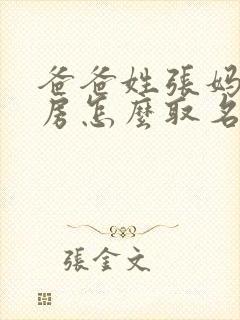 爸爸姓張媽
房怎麼取名
張金文